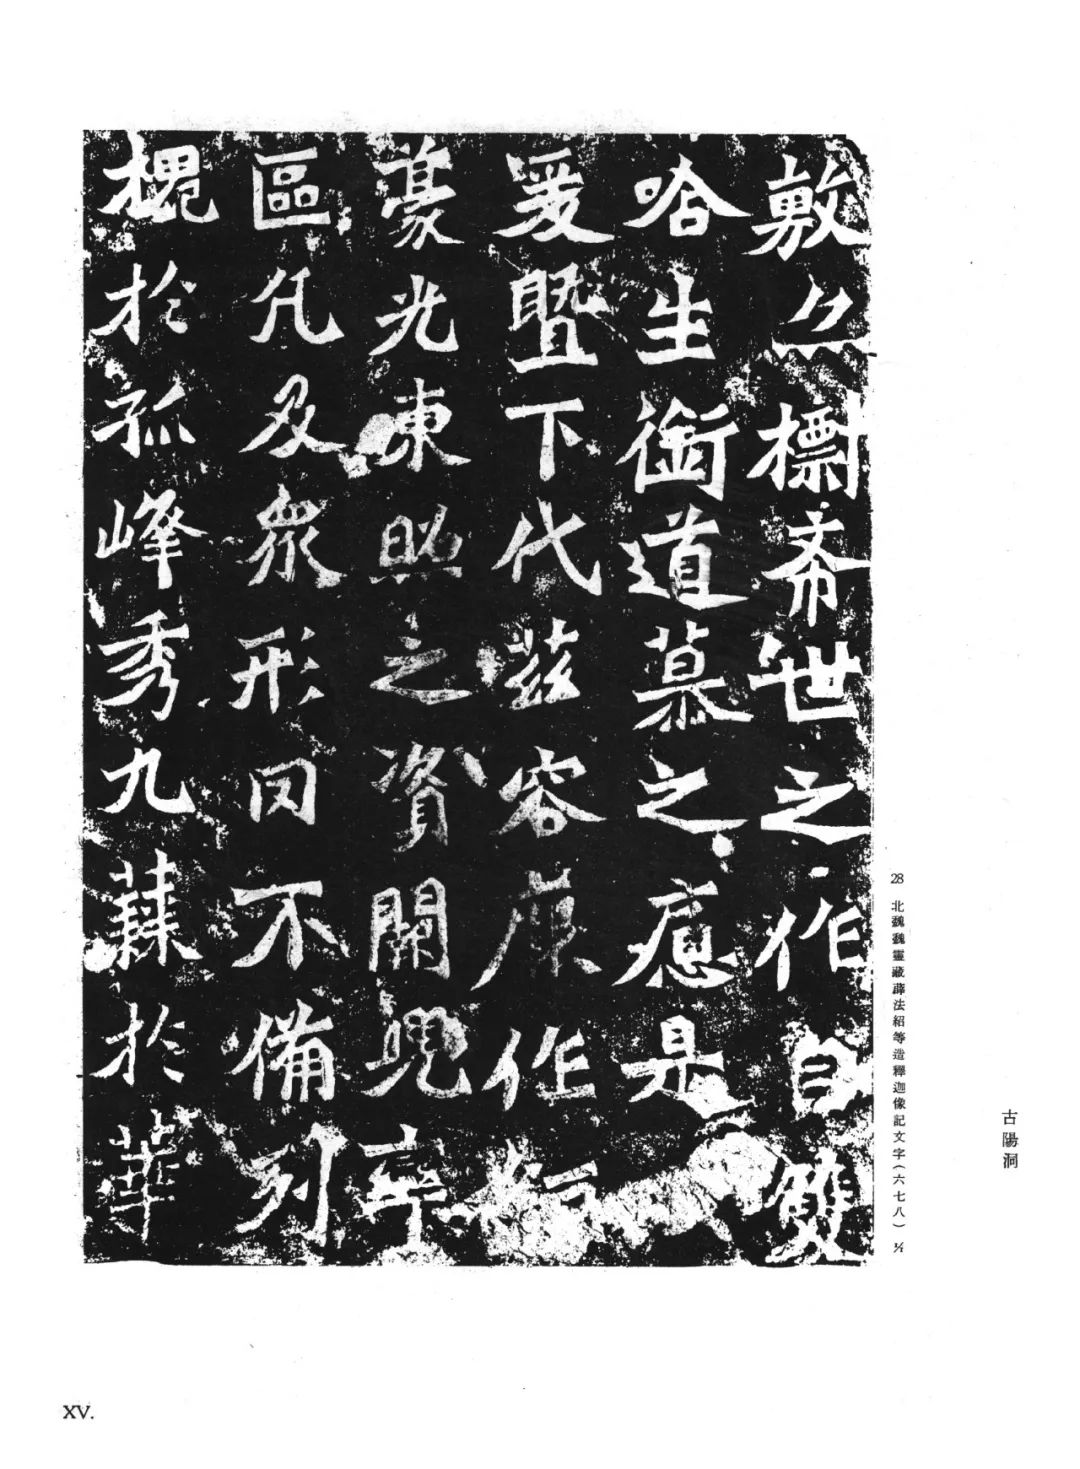 敷亦標希世之作自雙
唅生銜道慕之痛是
爰暨下代茲容厥作
豪光東照之資闕兜率
區凡及眾形罔不備列
槐於孤峰秀九蕀於華
28 北魏魏靈藏薛法紹等造釋迦像記文字(六七八) ½
古陽洞
XV.